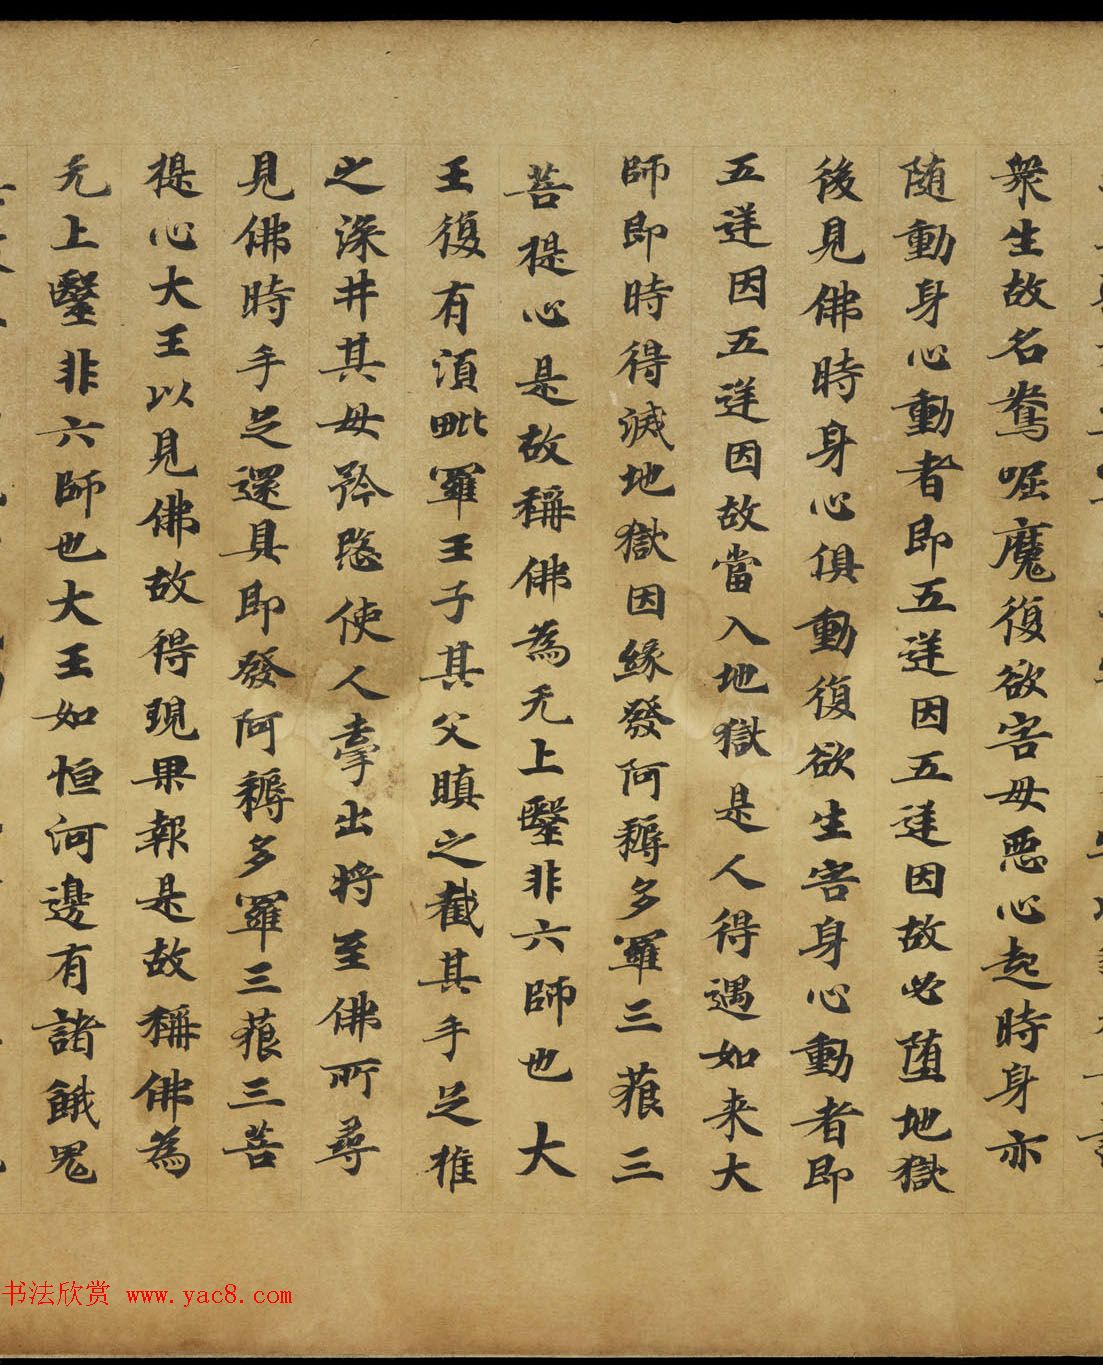 衆生故名鴦崛魔復欲害母惡心起時身亦
随動身心動者即五逆因五逆因故必堕地獄
後見佛時身心俱動復欲生害身心動者即
五逆因五逆因故當入地獄是人得遇如来大
師即時得滅地獄因緣發阿耨多羅三藐三
菩提心是故稱佛為无上醫非六師也大
王復有湏毗羅王子其父瞋之截其手足推
之深井其母矜愍使人牽出将至佛所尋
見佛時手足還具即發阿耨多羅三藐三菩
提心大王以見佛故得現果報是故稱佛為
无上醫非六師也大王如恒河邊有諸餓鬼
书法欣赏 www.yac8.com